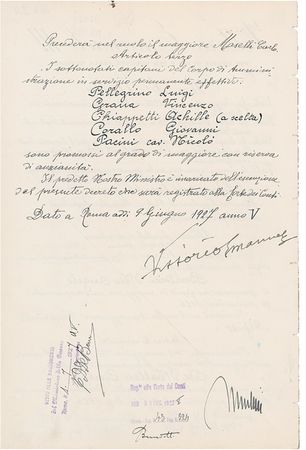 Prenderà nel ruolo il maggiore Maselli Carlo
Articolo terzo
I sottonotati capitani del Corpo di Ammini
strazione in servizio permanente effettivo:
Pellegrino Luigi
Grana Vincenzo
Chiappetti Achille (a scelta)
Corallo Giovanni
Pacini cav. Nicolò
sono promossi al grado di maggiore con riserva
di anzianità.
Il predetto Nostro Ministro è incaricato dell'esecuzione
del presente decreto che sarà registrato alla Corte dei Conti.
Dato a Roma addì 9 Giugno 1927 anno V
Vittorio Emanuele
Roma
Reg.to alla Corte dei Conti